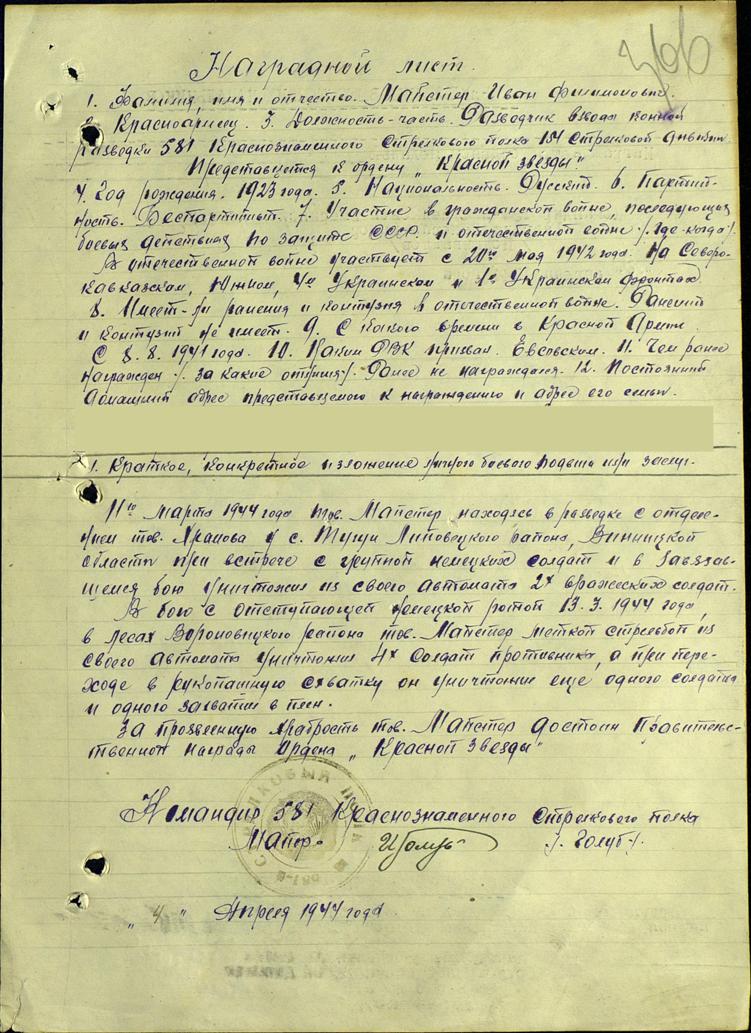 366
Наградной лист.
1. Фамилия, имя и отчество. Майстер Иван Филимонович.
2. Красноармеец. 3. Должность-часть. Разведчик взвода конной
разведки 581 Краснознаменного Стрелкового полка 151 Стрелковой дивизии
Представляется к ордену „Красной звезды"
4. Год рождения. 1923 года. 5. Национальность. Русский. 6. Партий-
ность. Беспартийный. 7. Участие в гражданской войне, последующих
боевых действиях по защите СССР и отечественной войне /. где-когда /.
В отечественной войне участвует с 20го мая 1942 года. На Северо-
кавказском, Южном, 4м Украинском и 1м Украинском фронтах
8. Имеет-ли ранения и контузия в отечественной войне. Ранений
и контузий не имеет. 9. С какого времени в Красной Армии.
С 8. 8. 1941 года. 10. Каким РВК призван. Евсовским. 11. Чем ранее
награжден /. за какие отличия /. Ранее не награждался. 12. Постоянный
домашний адрес представляемого к награждению и адрес его семьи.
1. Краткое, конкретное изложение личного боевого подвига или заслуг.
11го марта 1944 года тов. Майстер находясь в разведке с отделе-
нием тов. Храпова у с. Липовецкого района, Винницкой
области при встрече с группой немецких солдат и в завязав-
шемся бою уничтожил из своего автомата 2х вражеских солдат.
В бою с отступающей немецкой ротой 13. 3. 1944 года,
в лесах Вороновицкого района тов. Майстер меткой стрельбой из
своего автомата уничтожил 4х солдат противника, а при пере-
ходе в рукопашную схватку он уничтожил еще одного солдата
и одного захватил в плен.
За проявленную храбрость тов. Майстер достоин Правительс-
ственной награды Ордена „Красной звезды"
Командир 581 Краснознаменного Стрелкового полка
Майор - Голуб /. Голуб /.
„4" Апреля 1944 года.